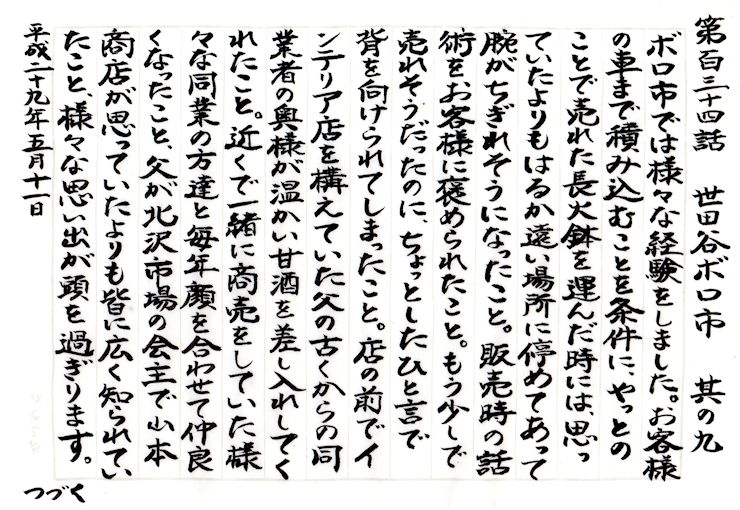 第百三十四話 世田谷ボロ市 其の九
ボロ市では様々な経験をしました。お客様
の車まで積み込むことを条件に、やっとの
ことで売れた長火鉢を運んだ時には、思っ
ていたよりもはるか遠い場所に停めてあって
腕がちぎれそうになったこと。販売時の話
術を、お客様に褒められたこと。もう少しで
売れそうだったのに、ちょっとしたひと言で
背を向けられてしまったこと。店の前でイ
ンテリア店を構えていた父の古くからの同
業者の奥様が温かい甘酒を差し入れしてく
れたこと。近くで一緒に商売をしていた様
々な同業の方達と毎年顔を合わせて仲良
くなったこと、父が北沢市場の会主で山本
商店が思っていたよりも皆に広く知られてい
たこと、様々な思い出が頭を過ぎります。
平成二十九年五月十一日
つづく